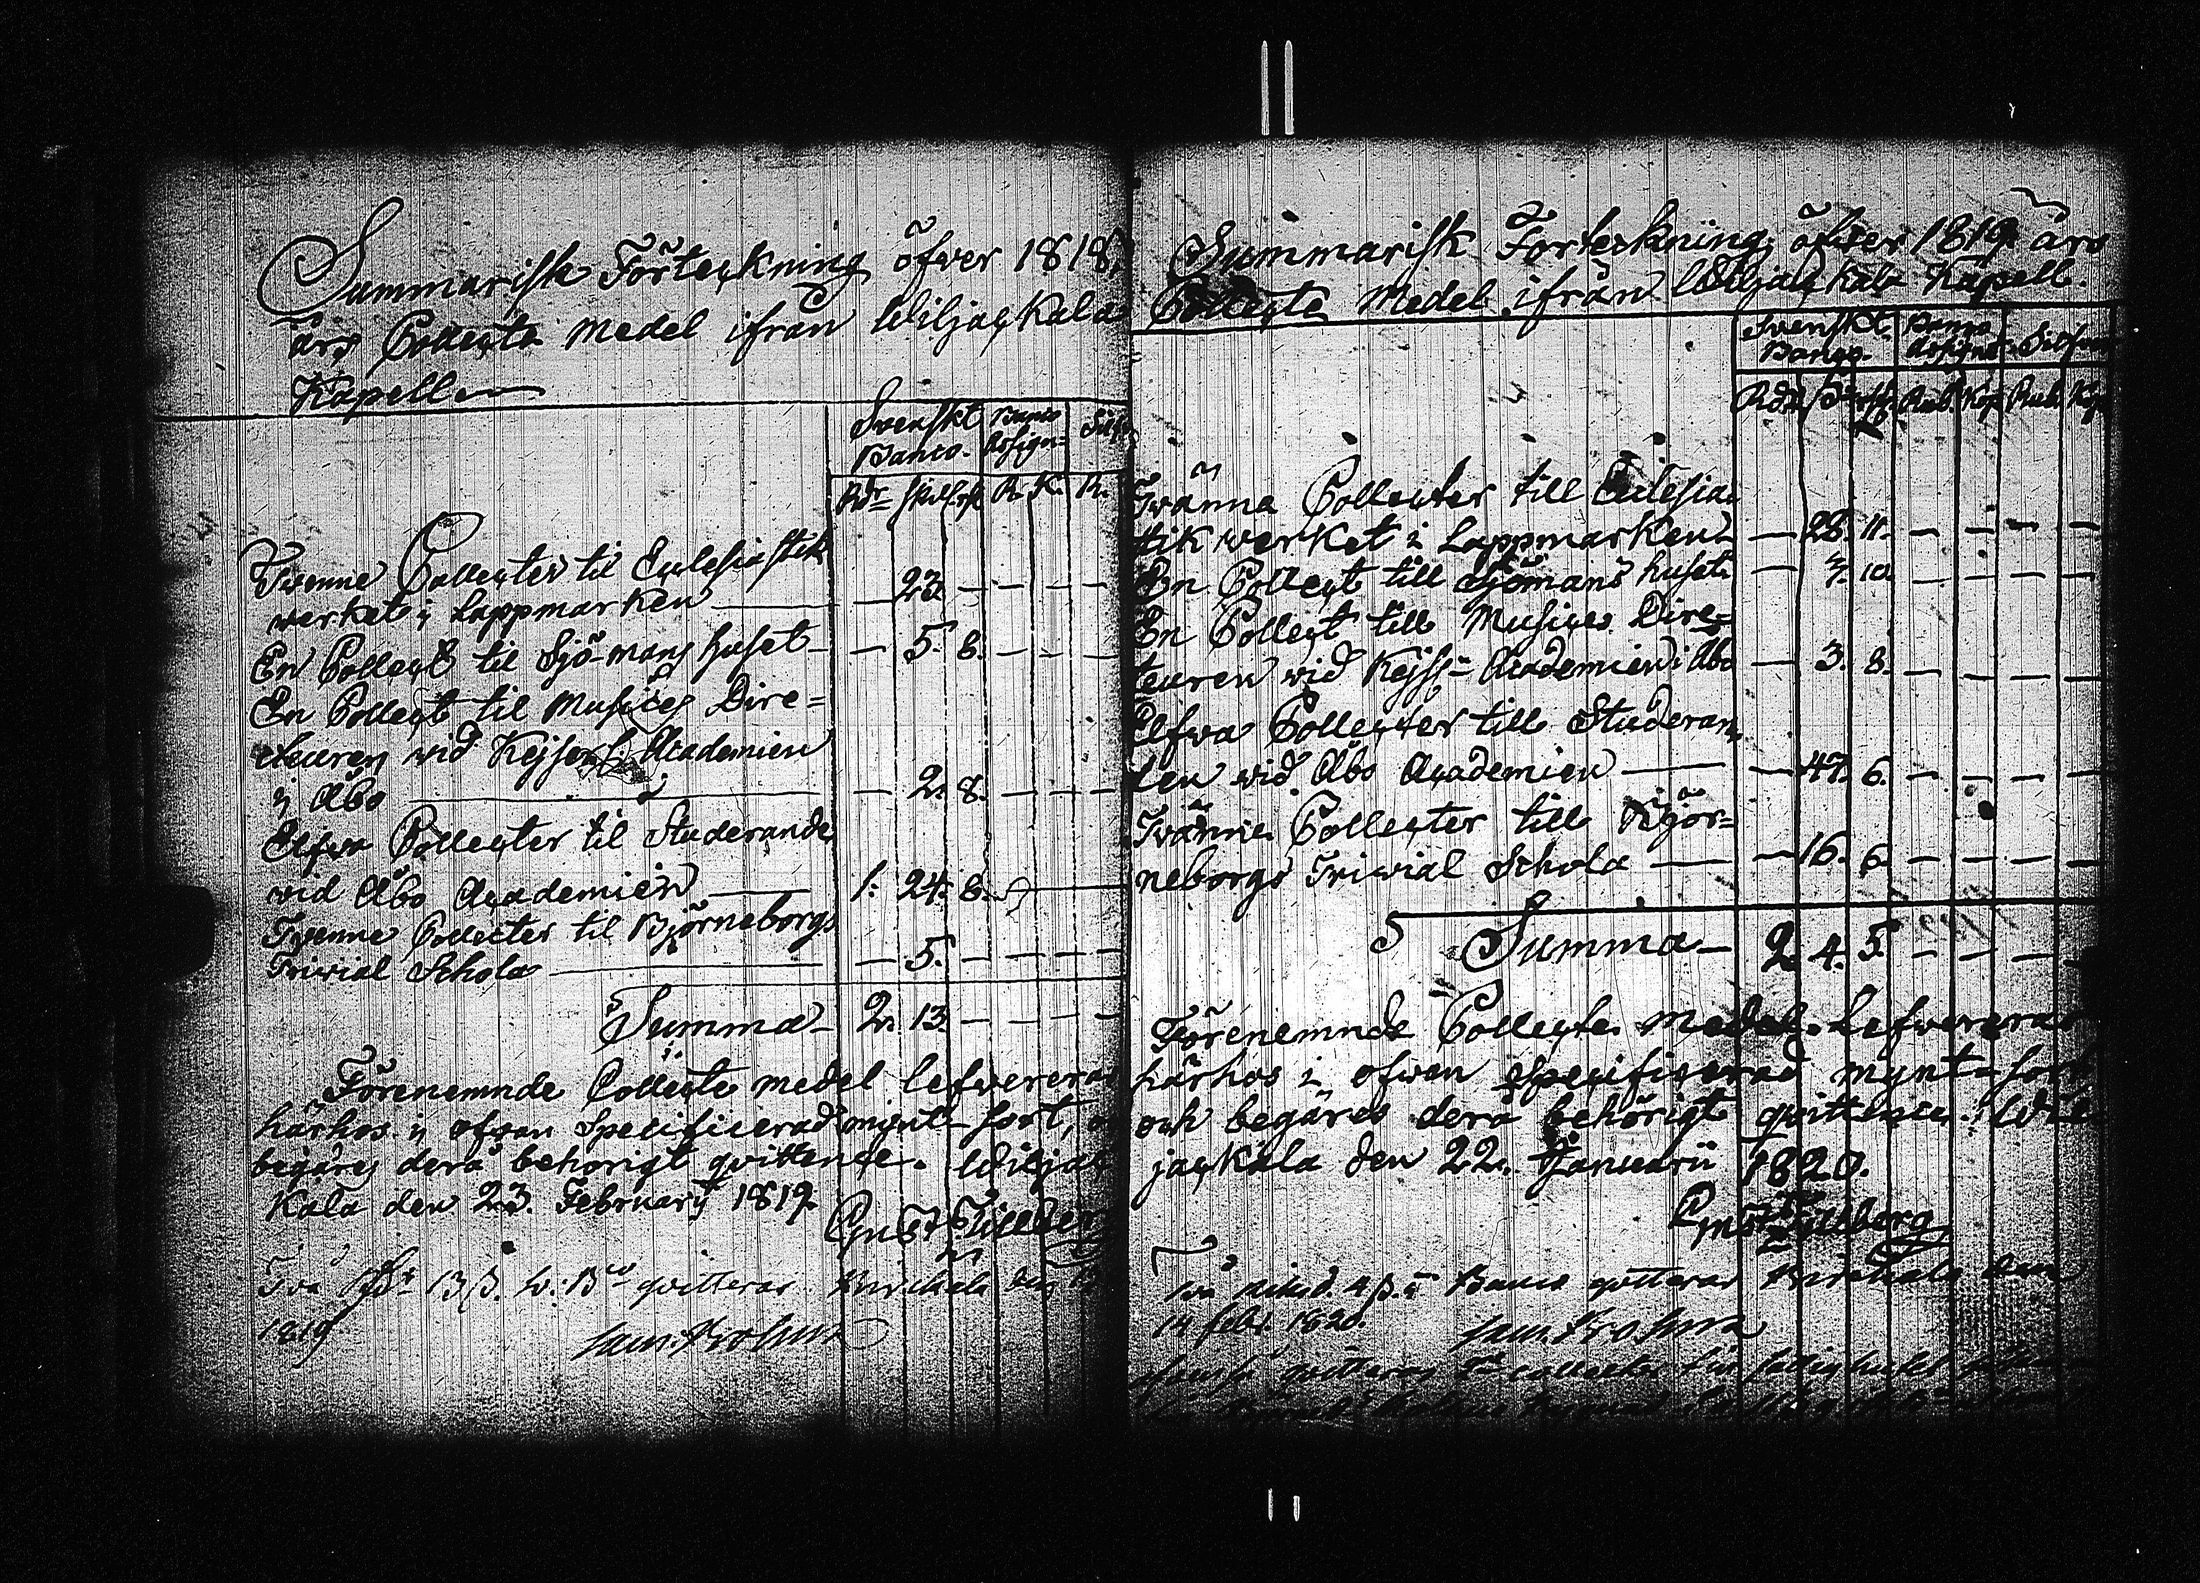 Summarisk Förteckning öfver 1818
års Collecte Medel ifrån Wiljackala
Kapell
Svenskt Banco Silf
Banco. Assign=
Rdr skill. rst. R. K. R.
Tvenne Collecter til Ecclesiastik
werket i Lappmarken — — 23. — — — —
En Collect til Sjö-mans huset — — 5. 8. — — —
En Collect til Musices Dire=
cteuren vid Kejserl. Academien
i Åbo — — 2. 8. — — —
Elfva Collecter til Studerande
vid Åbo Academien — 1. 24. 8.
Tvenne Collecter til Björneborgs
Trivial Schola — — 5. — — — —
Summa — 2. 13. — — — —
Förenemnde Collecte medel lefvereras
härhos i ofvan Specificerad mynt sort,
begäres derå behörigt qvittence. Wiljac
kala den 23. Februarii 1819.
Gust. Tillberg
Två Rdr 13 s. qvitteras Kyrökala den
1819
Summarisk Forteckning öfver 1819 års
Collecte Medel ifrån Wiljackala Kapell.
Svenskt Banco Silfver
Banco. Assign=
Rdr s. rst. Rub. Kop. Rub. Kop
Tvänne Collecter till Ecclesias
tik werket i Lappmarken — 28. 11. — — — —
En Collect till Sjömans huset — 3. 10. — — — —
En Collect till Musices Dire=
teuren vid Kejss= Academien i Åbo — 3. 8. — — — —
Elfva Collecter till Studeran
den vid Åbo Academien — — 47. 6. — — — —
Tvänne Collecter till Björ=
neborgs Trivial Schola — — 16. 6. — — — —
Summa — 2. 4. 5. — — — —
Förenemnde Collecte medel Lefvereras
härhos i ofvan specificerad mynt sort
och begäres derå behörigt qvittence. Wil
jackala den 22. Januarii 1820.
Gust. Tillberg
Två 4 s. Banco qvitteras den
14 febr. 1820.